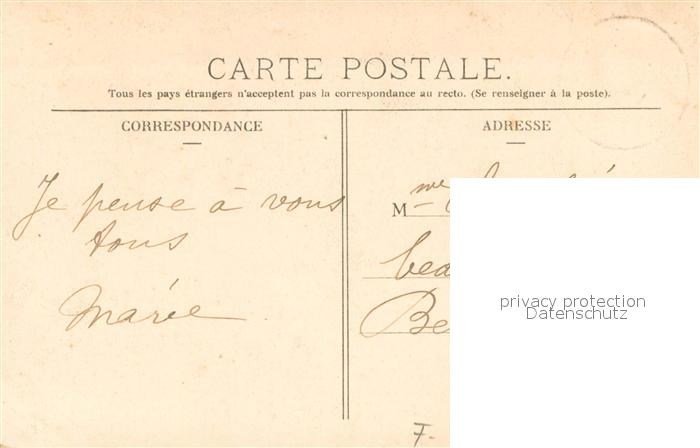 CARTE POSTALE.
Tous les pays étrangers n'acceptent pas la correspondance au recto. (Se renseigner à la poste).
CORRESPONDANCE
Je pense à vous
tous
Marie
ADRESSE
Mme
privacy protection
Datenschutz
F.